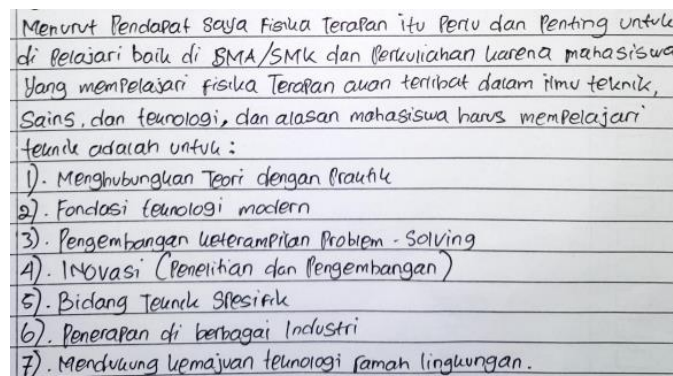 Menurut Pendapat saya Fisika Terapan itu Perlu dan Penting untuk
di Pelajari baik di SMA/SMK dan Perkuliahan karena mahasiswa
Yang mempelajari fisika Terapan akan terlibat dalam ilmu teknik,
Sains, dan teknologi, dan alasan mahasiswa harus mempelajari
teknik adalah untuk :
1). Menghubungkan Teori dengan Praktik
2). Fondasi teknologi modern
3). Pengembangan keterampilan Problem - Solving
4). INovasi (Penelitian dan Pengembangan)
5). Bidang Teknik Spesifik
6). Penerapan di berbagai Industri
7). Mendukung kemajuan teknologi ramah lingkungan.